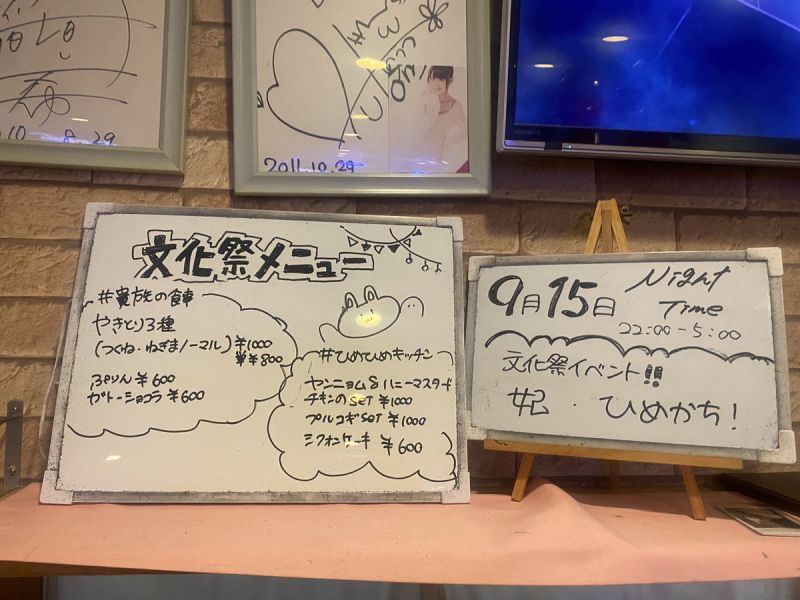 10 8.29
2011.10.29
文化祭メニュー
#貴族の食事
やきとり3種
(つくね・ねぎま・ノーマル) ¥1000
単¥800
ぷりん ¥600
ガトーショコラ ¥600
#ひめひめキッチン
ヤンニョム&ハニーマスタード
チキンのSET ¥1000
プルコギSET ¥1000
シフォンケーキ ¥600
9月15日
Night
Time
22:00-5:00
文化祭イベント!!
妃・ひめがち!